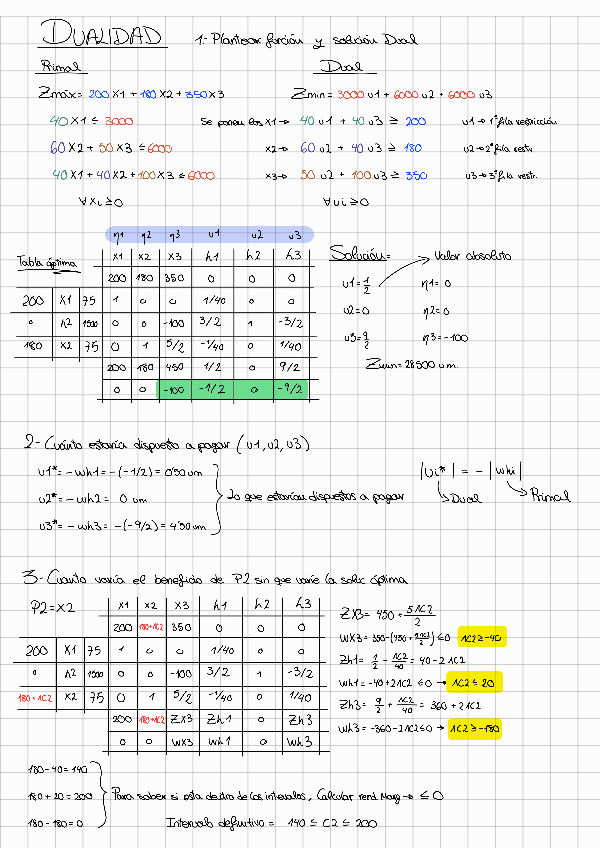 DUALIDAD 1.- Plantear función y solución Dual
Primal Dual
Zmáx = 200 X1 + 180 X2 + 350 X3 Zmin = 3000 u1 + 6000 u2 + 6000 u3
40 X1 ≤ 3000 Se ponen los X1 → 40 u1 + 40 u3 ≥ 200 u1 → 1ª fila restricción
60 X2 + 50 X3 ≤ 6000 X2 → 60 u2 + 40 u3 ≥ 180 u2 → 2ª fila restr.
40 X1 + 40 X2 + 100 X3 ≤ 6000 X3 → 50 u2 + 100 u3 ≥ 350 u3 → 3ª fila restr.
∀ Xi ≥ 0 ∀ ui ≥ 0
η1 η2 η3 u1 u2 u3
Tabla óptima X1 X2 X3 h1 h2 h3
200 180 350 0 0 0
200 X1 75 1 0 0 1/40 0 0
0 h2 1500 0 0 -100 3/2 1 -3/2
180 X2 75 0 1 5/2 -1/40 0 1/40
200 180 450 1/2 0 9/2
0 0 -100 -1/2 0 -9/2
Solución = → Valor absoluto
u1 = 1/2 η1 = 0
u2 = 0 η2 = 0
u3 = 9/2 η3 = -100
Zmin = 28500 u.m.
2- Cuánto estaría dispuesto a pagar (u1, u2, u3)
u1* = - wh1 = -(-1/2) = 0'50 um
u2* = - wh2 = 0 um
u3* = - wh3 = -(-9/2) = 4'50 um
Lo que estarían dispuestos a pagar
|ui*| = - |whi|
Dual Primal
3- Cuanto varía el beneficio de P2 sin que varíe la soluc óptima
P2 = X2 X1 X2 X3 h1 h2 h3
200 180+ΔC2 350 0 0 0
200 X1 75 1 0 0 1/40 0 0
0 h2 1500 0 0 -100 3/2 1 -3/2
180+ΔC2 X2 75 0 1 5/2 -1/40 0 1/40
200 180+ΔC2 ZX3 Zh1 0 Zh3
0 0 WX3 Wh1 0 Wh3
ZX3 = 450 + 5ΔC2/2
WX3 = 350 - (450 + 5ΔC2/2) ≤ 0 ΔC2 ≥ -40
Zh1 = 1/2 - ΔC2/40 = 40 - 2ΔC2
Wh1 = -40 + 2ΔC2 ≤ 0 → ΔC2 ≤ 20
Zh3 = 9/2 + ΔC2/40 = 360 + 2ΔC2
Wh3 = -360 - 2ΔC2 ≤ 0 → ΔC2 ≥ -180
180 - 40 = 140
180 + 20 = 200
180 - 180 = 0
Para saber si esta dentro de los intervalos, Calcular rend Marg → ≤ 0
Intervalo definitivo = 140 ≤ C2 ≤ 200